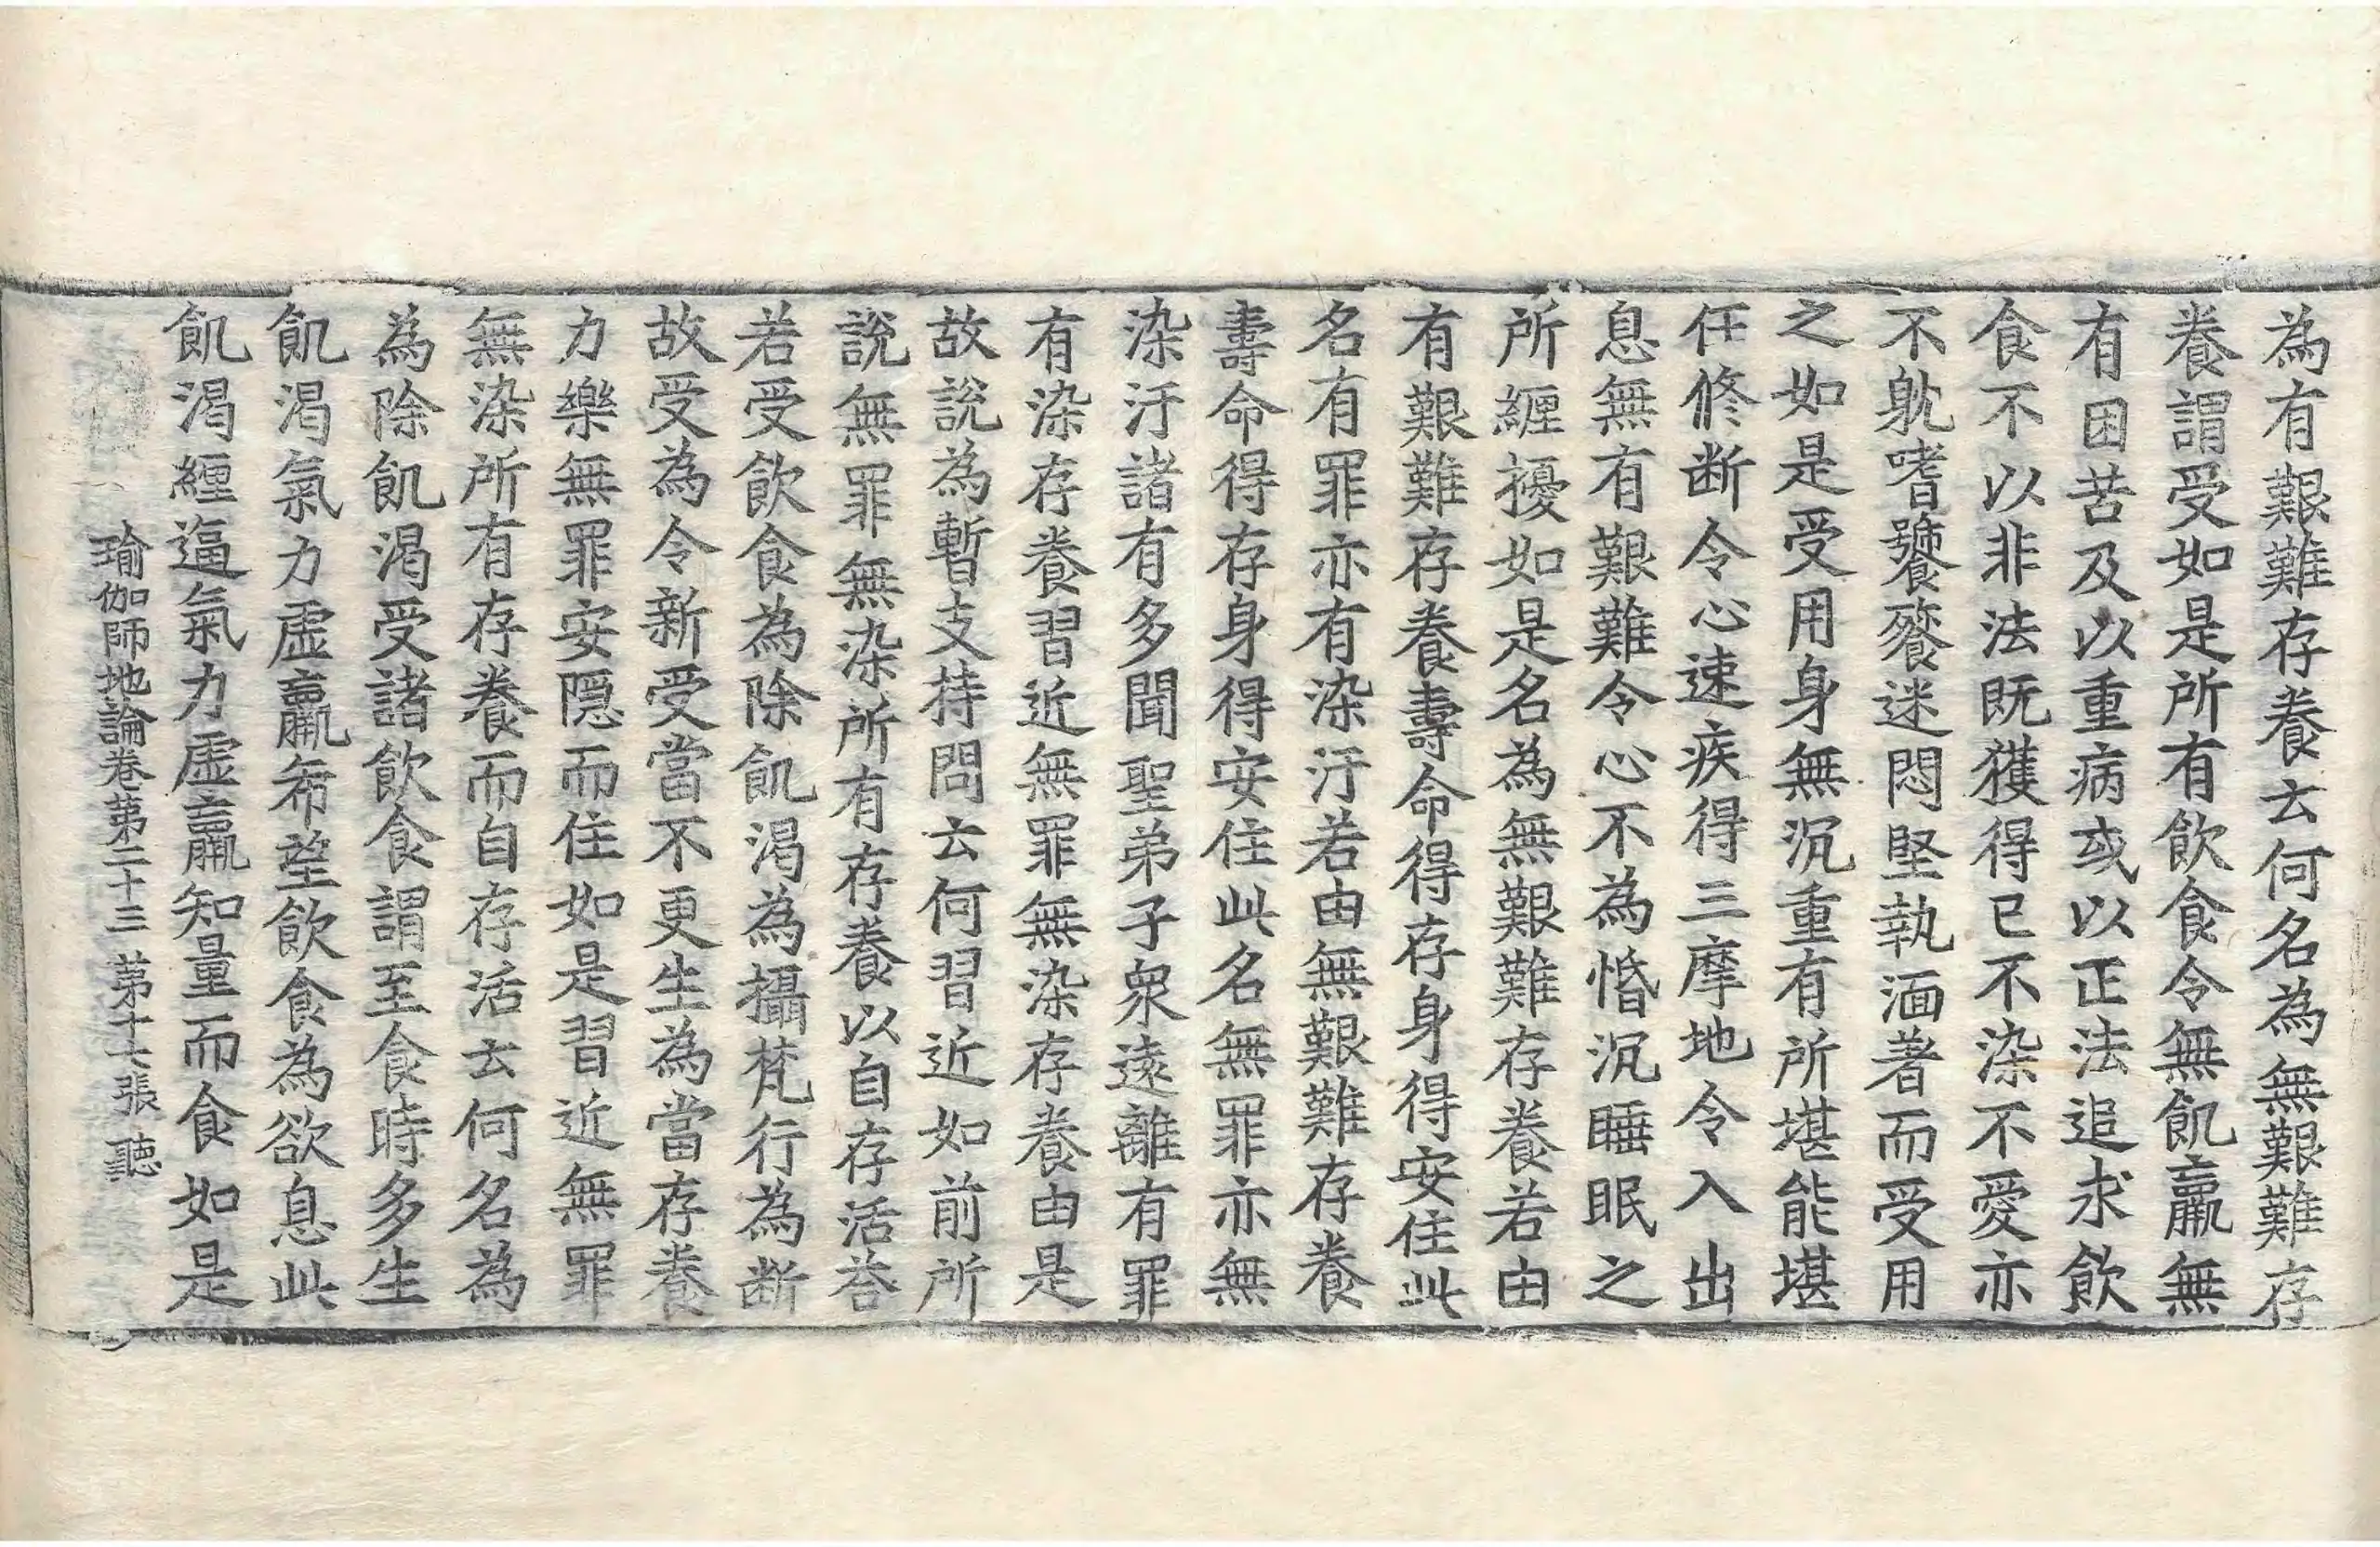 為有艱難存養云何名為無艱難存
養謂受如是所有飲食令無飢羸無
有因苦及以重病或以正法追求飲
食不以非法既獲得已不染不愛亦
不躭嗜饕餮迷悶堅執湎著而受用
之如是受用身無沉重有所堪能堪
任修断令心速疾得三摩地令入出
息無有艱難令心不為惛沉睡眠之
所纏擾如是名為無艱難存養若由
有艱難存養壽命得存身得安住此
名有罪亦有染汙若由無艱難存養
壽命得存身得安住此名無罪亦無
染汙諸有多聞聖弟子衆遠離有罪
有染存養習近無罪無染存養由是
故說為暫支持問云何習近如前所
說無罪無染所有存養以自存活荅
若受飲食為除飢渴為攝梵行為断
故受為令新受當不更生為當存養
力樂無罪安隠而住如是習近無罪
無染所有存養而自存活云何名為
為除飢渴受諸飲食謂至食時多生
飢渴氣力虛羸希望飲食為欲息此
飢渴纏逼氣力虛羸知量而食如是
瑜伽師地論卷第二十三 第十七張 聽